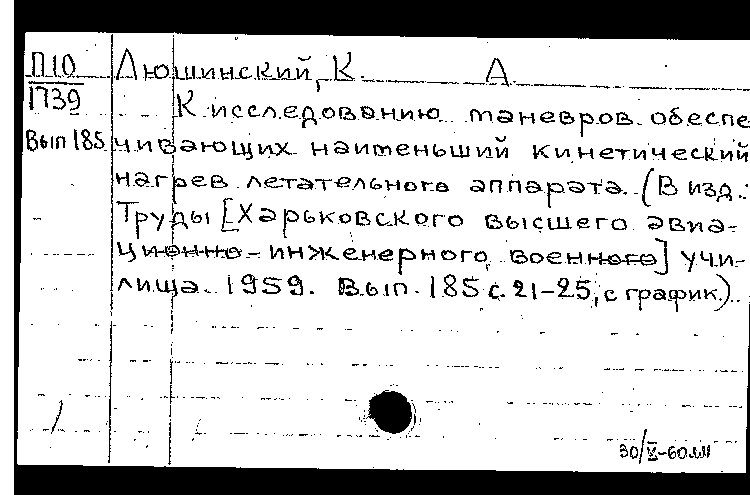 П10 Люшинский, К. А
П39 К исследованию маневров обеспе
Вып 185 чивающих наименьший кинетический
нагрев летательного аппарата. (В изд.:
Труды [Харьковского высшего авиа-
ционно-инженерного военного] учи-
лища. 1959. Вып. 185 с. 21-25, с график.)